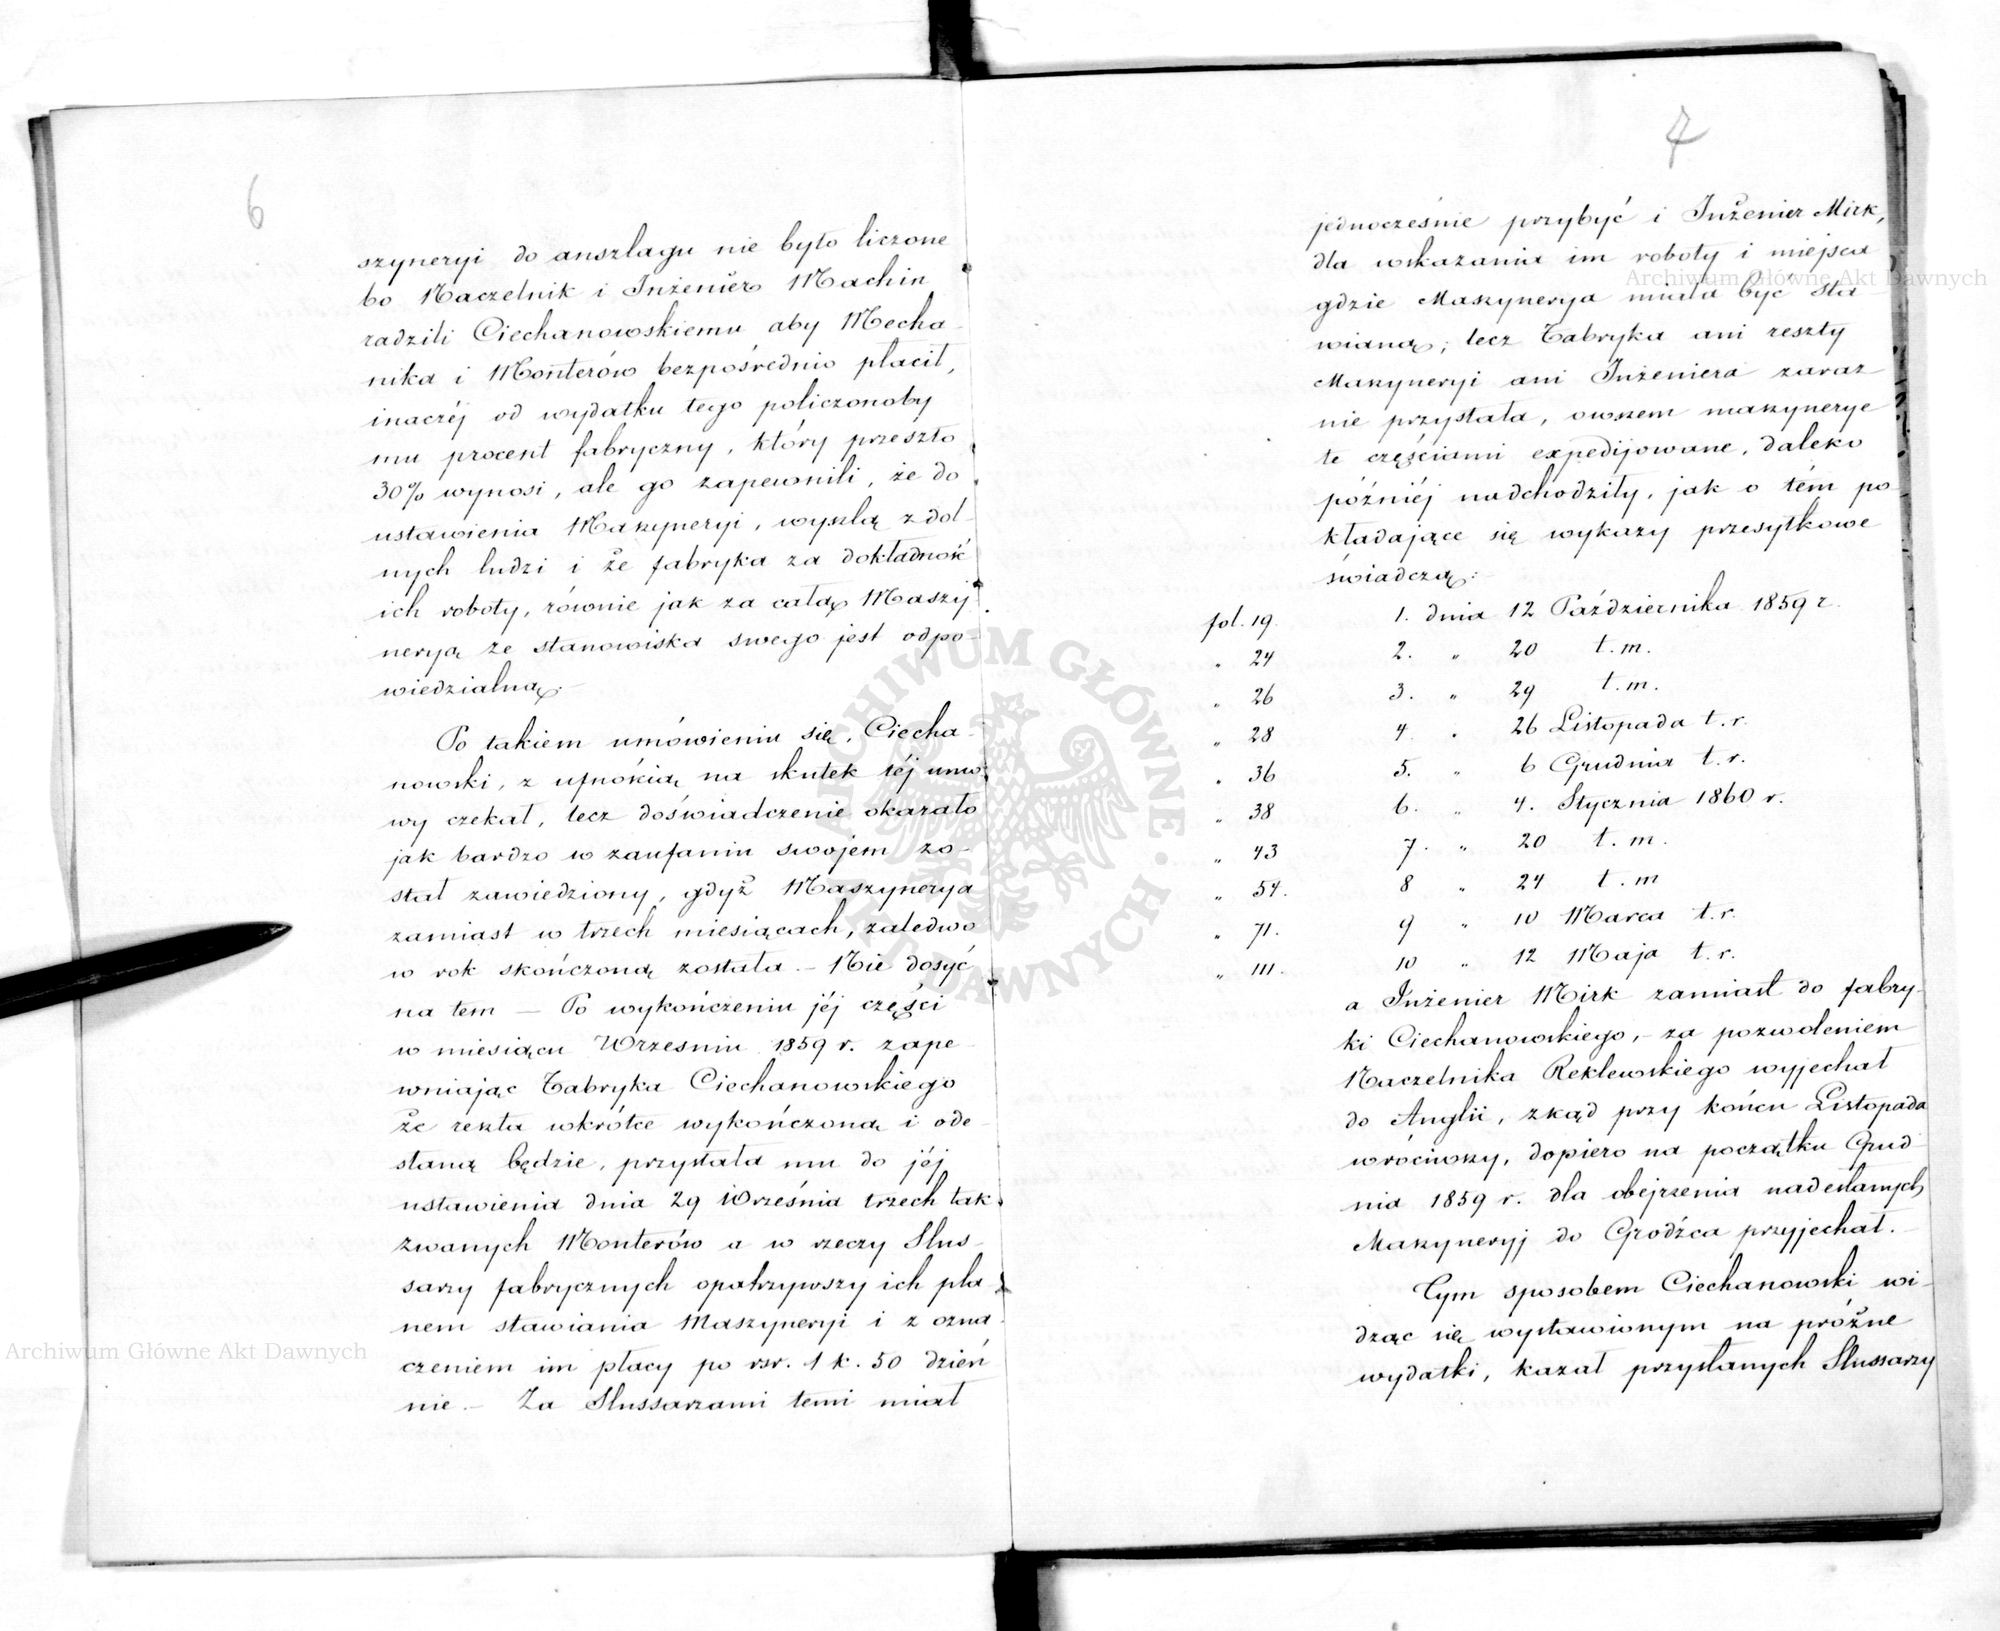 6
szyneryi do anszlagu nie było liczone
bo Naczelnik i Inżenier Machin
radzili Ciechanowskiemu aby Mecha-
nika i Monterów bezpośrednio płacił,
inaczéj od wydatku tego policzonoby
mu procent fabryczny, który przeszło
30% wynosi, ale go zapewnili, że do
ustawienia Maszyneryi, wyszlą zdol-
nych ludzi i że fabryka za dokładność
ich roboty, równie jak za całą Maszy-
neryą ze stanowiska swego jest odpo-
wiedzialną.-
Po takiem umówieniu się, Ciecha-
nowski, z ufnością na skutek téj umo-
wy czekał, lecz doświadczenie okazało
jak bardzo w zaufaniu swojem zo-
stał zawiedziony, gdyż Maszynerya
zamiast w trzech miesiącach, zaledwo
w rok skończoną została.- Nie dosyć
na tem - Po wykończeniu jéj części
w miesiącu Wrzesniu 1859 r. zape-
wniając Fabryka Ciechanowskiego
że reszta wkrótce wykończoną i ode-
słaną będzie, przysłała mu do jéj
ustawienia dnia 29 Września trzech tak
zwanych Monterów a w rzeczy Slus-
sarzy fabrycznych opatrzywszy ich pla-
nem stawiania Maszyneryi i z ozna-
czeniem im płacy po rsr. 1 k. 50 dzień
nie.- Za Slussarzami temi miał
7
jednocześnie przybyć i Inżenier Mirk,
dla wskazania im roboty i miejsca
gdzie Maszynerya miała być sta-
wianą; lecz Fabryka ani reszty
Maszyneryi ani Inżeniera zaraz
nie przysłała, owszem maszynerye
te częściami expedijowane, daleko
późniéj nadchodziły, jak o tém po-
kładające się wykazy przesyłkowe
świadczą:-
fol. 19. 1. dnia 12 Października 1859 r.
" 24 2. " 20 t.m.
" 26 3. " 29 t.m.
" 28 4. " 26 Listopada t.r.
" 36 5. " 6 Grudnia t.r.
" 38 6. " 4. Stycznia 1860 r.
" 43 7. " 20 t.m.
" 54. 8 " 24 t.m
" 71. 9 " 10 Marca t.r.
" 111. 10 " 12 Maja t.r.
a Inżenier Mirk zamiast do fabry-
ki Ciechanowskiego,- za pozwoleniem
Naczelnika Reklewskiego wyjechał
do Anglii, zkąd przy końcu Listopada
wróciwszy, dopiero na początku Grud
nia 1859 r. dla obejrzenia nadesłanych
Maszyneryj do Grodźca przyjechał.-
Tym sposobem Ciechanowski wi-
dząc się wystawionym na próżne
wydatki, kazał przysłanych Slussarzy
Archiwum Główne Akt Dawnych
Archiwum Główne Akt Dawnych
ARCHIWUM GŁÓWNE AKT DAWNYCH